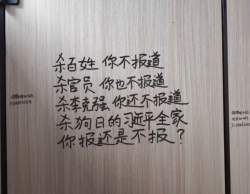 杀百姓 你不报道
杀官员 你也不报道
杀李克强 你还不报道
杀狗日的习近平全家
你报还是不报？